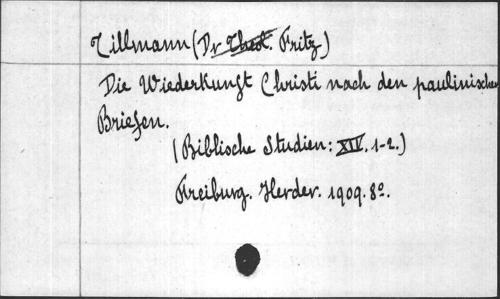 Tillmann (Dr Theol. Fritz)
Die Wiederkunft Christi nach den paulinischen
Briefen.
(Biblische Studien: XIV. 1-2.)
Freiburg. Herder. 1909. 8º.